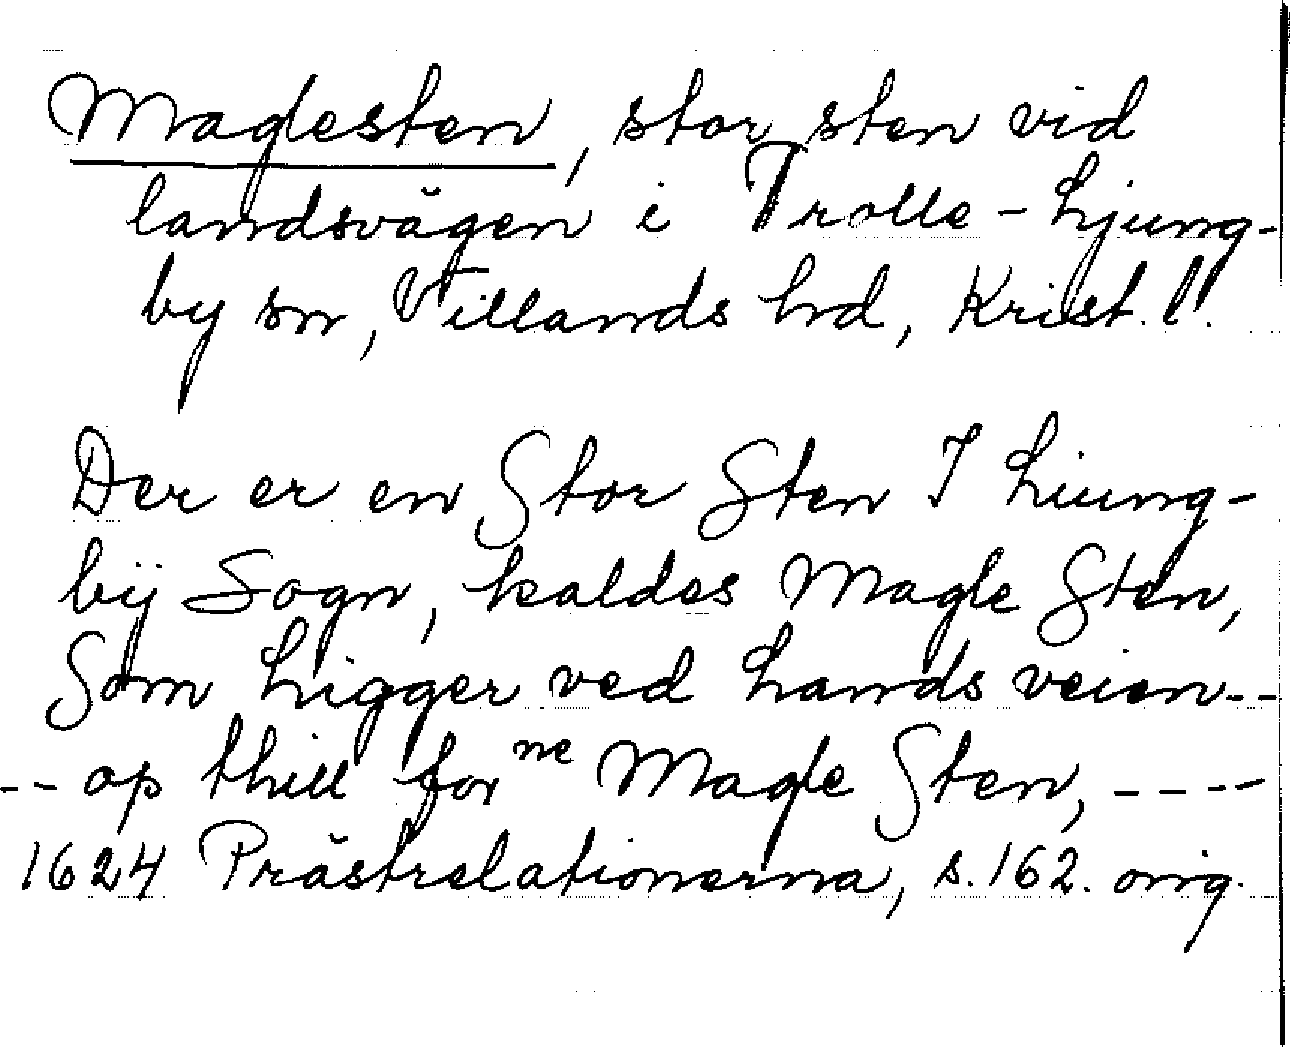 Maglesten, stor sten vid
landsvägen i Trolle-Ljung-
by sn, Villands hd, Krist. l.
Der er en Stor Sten I Liung-
bÿ Sogn, kaldes Magle Sten,
Som Ligger ved Lands veien--
-- op thill forne Magle Sten, ----
1624 Prästrelationerna, s. 162. orig.